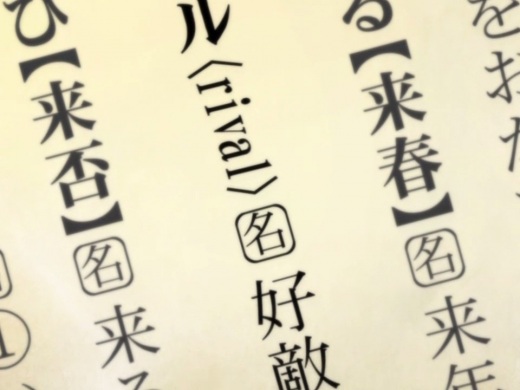 る【来春】名来年
ル〈rival〉名好敵
ひ【来否】名来る